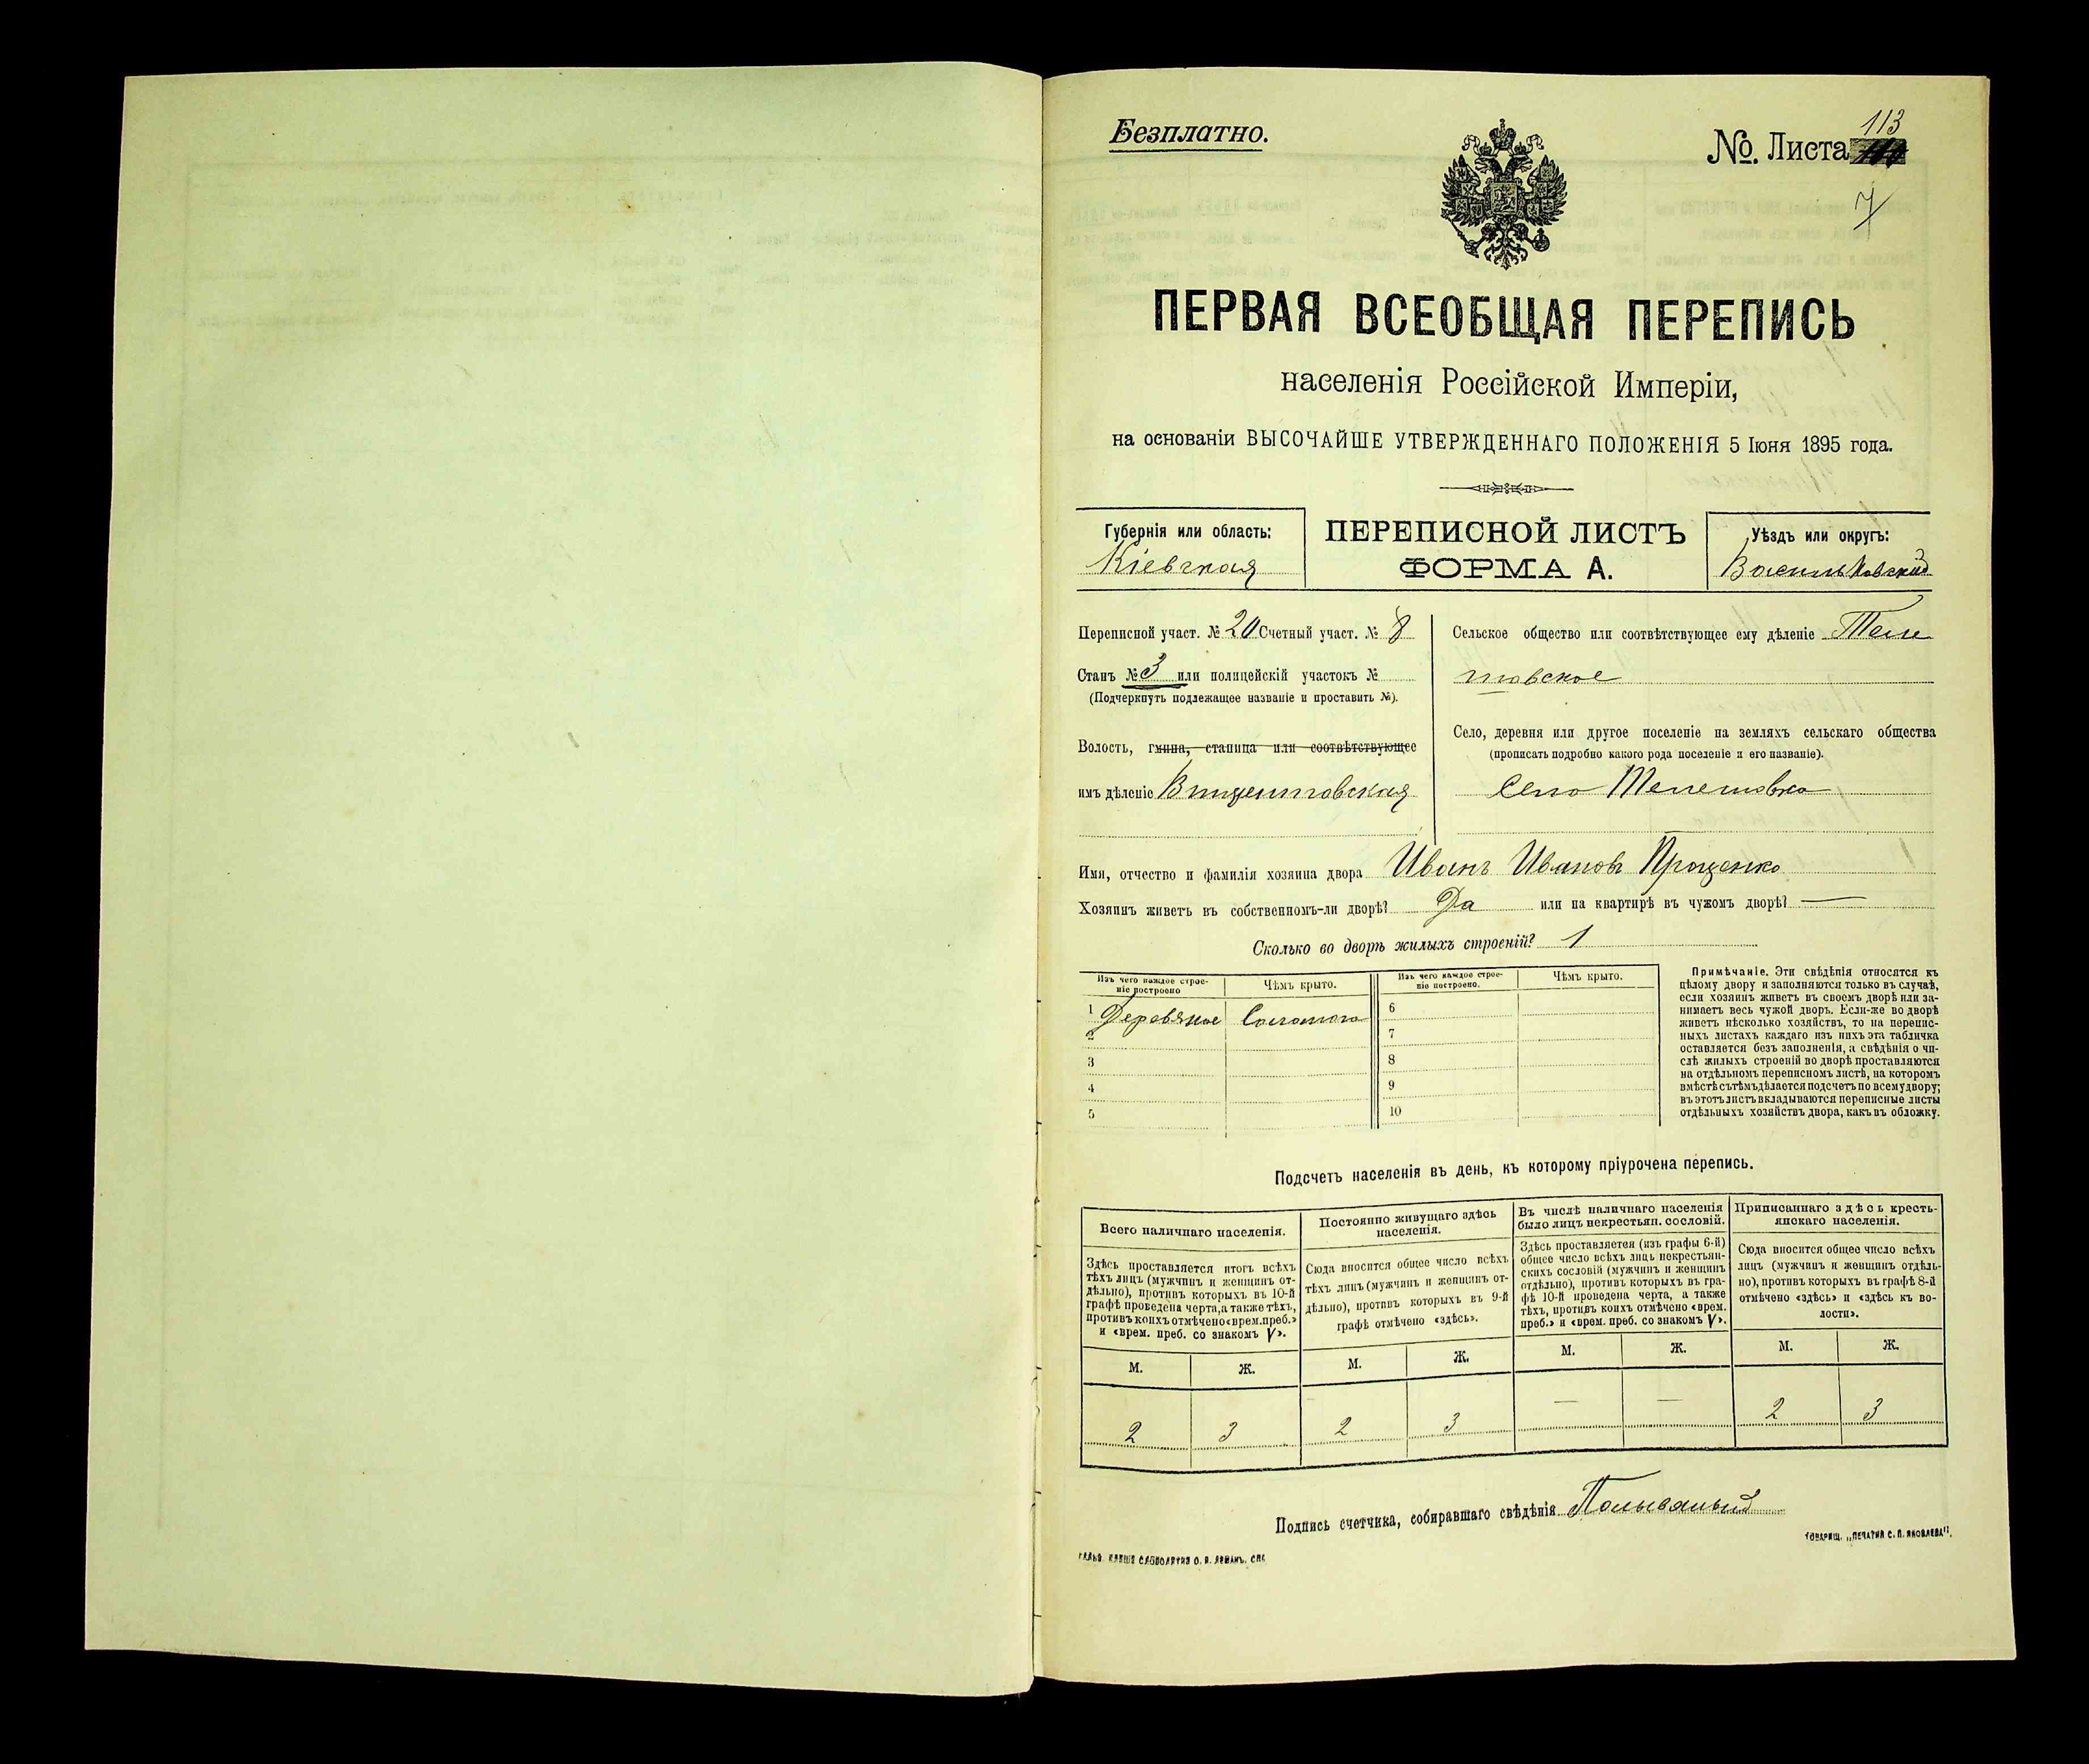 Безплатно.
№. Листа 113
7
ПЕРВАЯ ВСЕОБЩАЯ ПЕРЕПИСЬ
населенія Россійской Имперіи,
на основаніи ВЫСОЧАЙШЕ УТВЕРЖДЕННАГО ПОЛОЖЕНІЯ 5 Іюня 1895 года.
Губернія или область:
Кіевская
ПЕРЕПИСНОЙ ЛИСТЪ
ФОРМА А.
Уѣздъ или округъ:
Васильковскій
Переписной участ. № 20 Счетный участ. № 8
Станъ № 3 или полицейскій участокъ №
(Подчеркнуть подлежащее названіе и проставить №).
Волость, гмина, станица или соотвѣтствующее
имъ дѣленіе Винцентовская
Сельское общество или соотвѣтствующее ему дѣленіе Теле
шовское
Село, деревня или другое поселеніе на земляхъ сельскаго общества
(прописать подробно какого рода поселеніе и его названіе).
Село Телешовка
Имя, отчество и фамилія хозяина двора Иванъ Ивановъ Проценко
Хозяинъ живетъ въ собственномъ-ли дворѣ? Да или на квартирѣ въ чужомъ дворѣ? —
Сколько во дворѣ жилыхъ строеній? 1
Изъ чего каждое строе-
ніе построено
Чѣмъ крыто.
Изъ чего каждое строе-
ніе построено.
Чѣмъ крыто.
1 Деревяное Соломою
2
3
4
5
6
7
8
9
10
Примѣчаніе. Эти свѣдѣнія относятся къ
цѣлому двору и заполняются только въ случаѣ,
если хозяинъ живетъ въ своемъ дворѣ или за-
нимаетъ весь чужой дворъ. Если-же во дворѣ
живетъ нѣсколько хозяйствъ, то на перепис-
ныхъ листахъ каждаго изъ нихъ эта табличка
оставляется безъ заполненія, а свѣдѣнія о чи-
слѣ жилыхъ строеній во дворѣ проставляются
на отдѣльномъ переписномъ листѣ, на которомъ
вмѣстѣ съ тѣмъ дѣлается подсчетъ по всему двору;
въ этотъ листъ вкладываются переписные листы
отдѣльныхъ хозяйствъ двора, какъ въ обложку.
Подсчетъ населенія въ день, къ которому пріурочена перепись.
Всего наличнаго населенія.
Здѣсь проставляется итогъ всѣхъ
тѣхъ лицъ (мужчинъ и женщинъ от-
дѣльно), противъ которыхъ въ 10-й
графѣ проведена черта, а также тѣхъ,
противъ коихъ отмѣчено «врем. преб.»
и «врем. преб. со знакомъ V».
М. Ж.
2 3
Постоянно живущаго здѣсь
населенія.
Сюда вносится общее число всѣхъ
тѣхъ лицъ (мужчинъ и женщинъ от-
дѣльно), противъ которыхъ въ 9-й
графѣ отмѣчено «здѣсь».
М. Ж.
2 3
Въ числѣ наличнаго населенія
было лицъ некрестьян. сословій.
Здѣсь проставляется (изъ графы 6-й)
общее число всѣхъ лицъ некрестьян-
скихъ сословій (мужчинъ и женщинъ
отдѣльно), противъ которыхъ въ гра-
фѣ 10-й проведена черта, а также
тѣхъ, противъ коихъ отмѣчено «врем.
преб.» и «врем. преб. со знакомъ V».
М. Ж.
— —
Приписаннаго здѣсь кресть-
янскаго населенія.
Сюда вносится общее число всѣхъ
лицъ (мужчинъ и женщинъ отдѣль-
но), противъ которыхъ въ графѣ 8-й
отмѣчено «здѣсь» и «здѣсь къ во-
лости».
М. Ж.
2 3
Подпись счетчика, собиравшаго свѣдѣнія Полываный
ТОВАРИЩ. „ПЕЧАТНЯ С. П. ЯКОВЛЕВА".